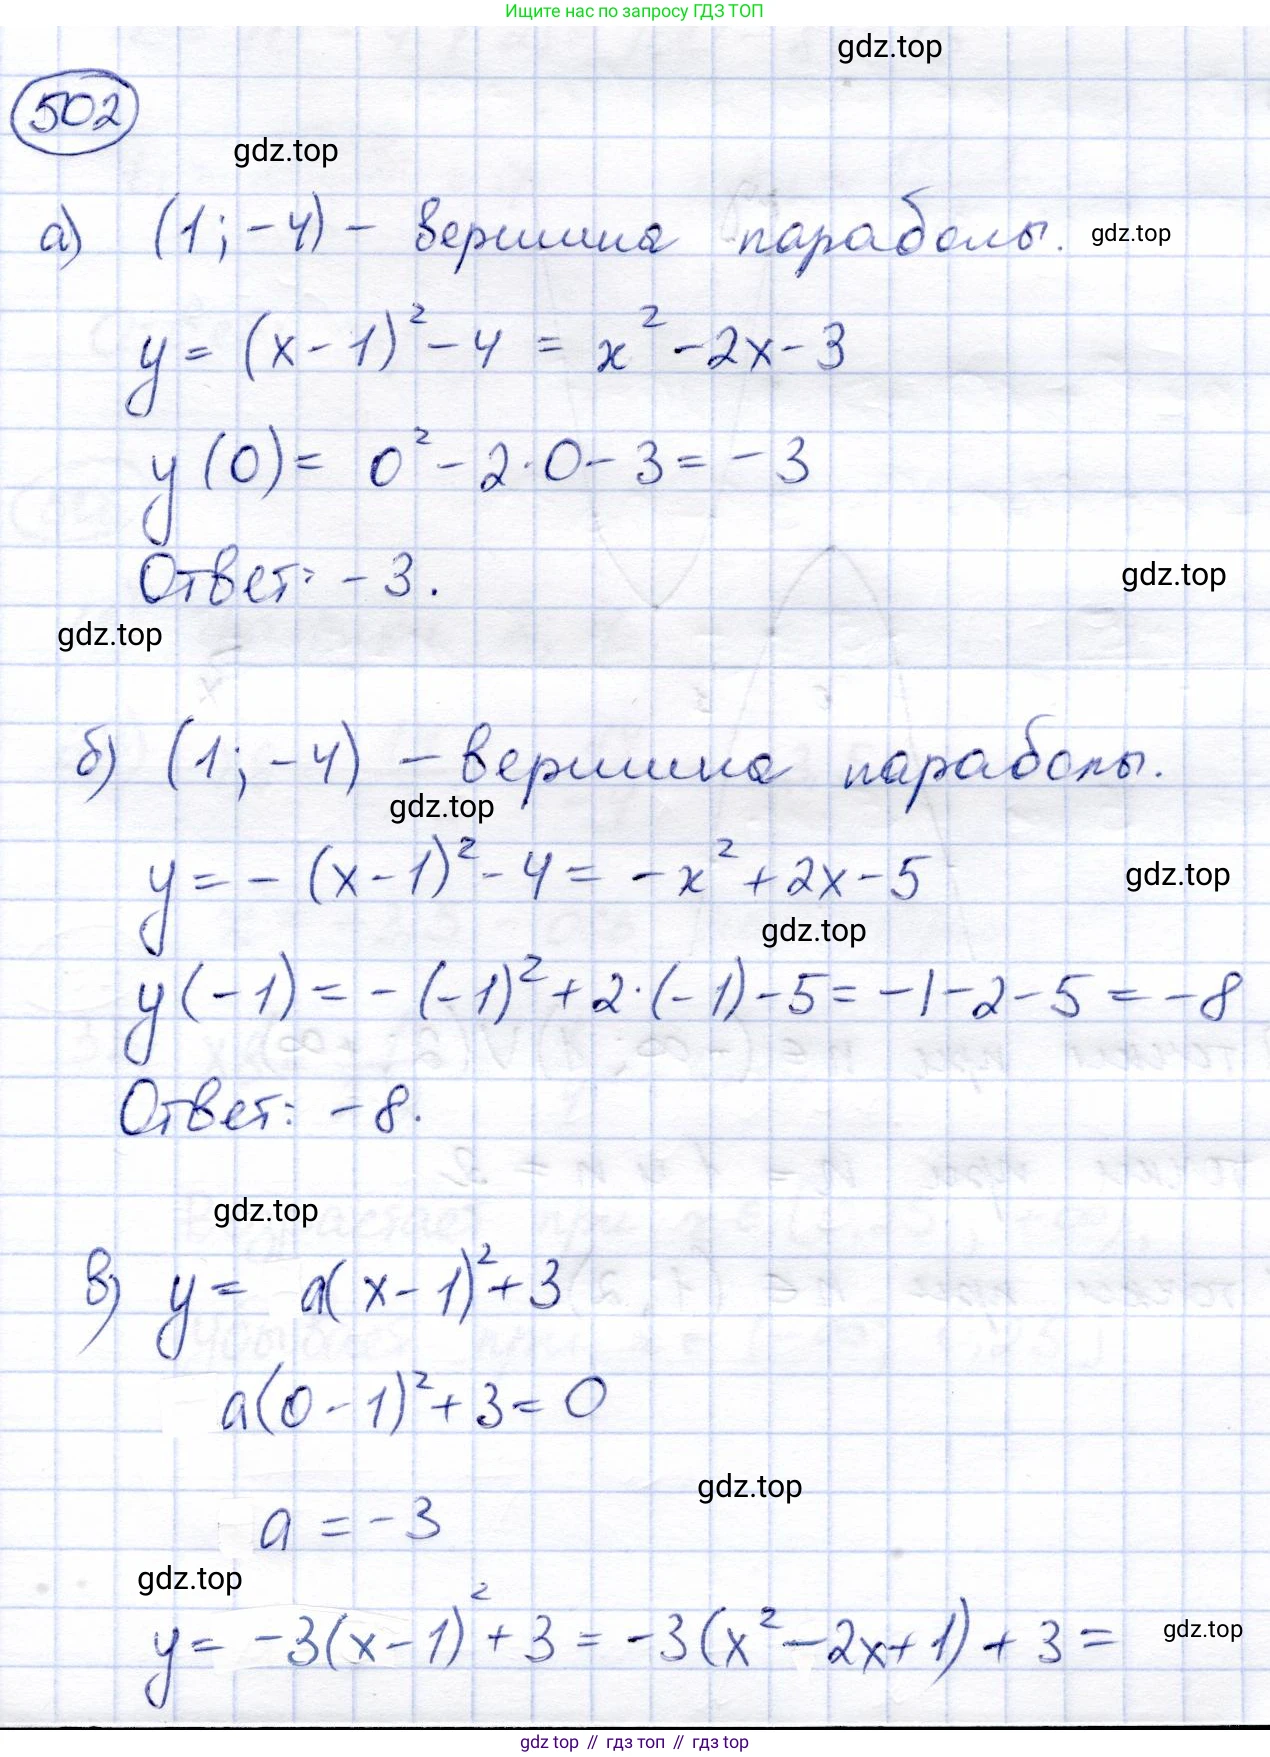 Ищите нас по запросу ГДЗ ТОП
gdz.top
502
gdz.top
а) (1; -4) - вершина параболы. gdz.top
y = (x - 1)² - 4 = x² - 2x - 3
y(0) = 0² - 2·0 - 3 = -3
Ответ: -3.
gdz.top
gdz.top
б) (1; -4) - вершина параболы.
gdz.top
y = - (x - 1)² - 4 = -x² + 2x - 5
gdz.top
gdz.top
y(-1) = - (-1)² + 2·(-1) - 5 = -1 - 2 - 5 = -8
Ответ: -8.
gdz.top
в) y = a(x - 1)² + 3
a(0 - 1)² + 3 = 0
gdz.top
a = -3
gdz.top
y = -3(x - 1)² + 3 = -3(x² - 2x + 1) + 3 = gdz.top
gdz top // гдз топ // гдз top